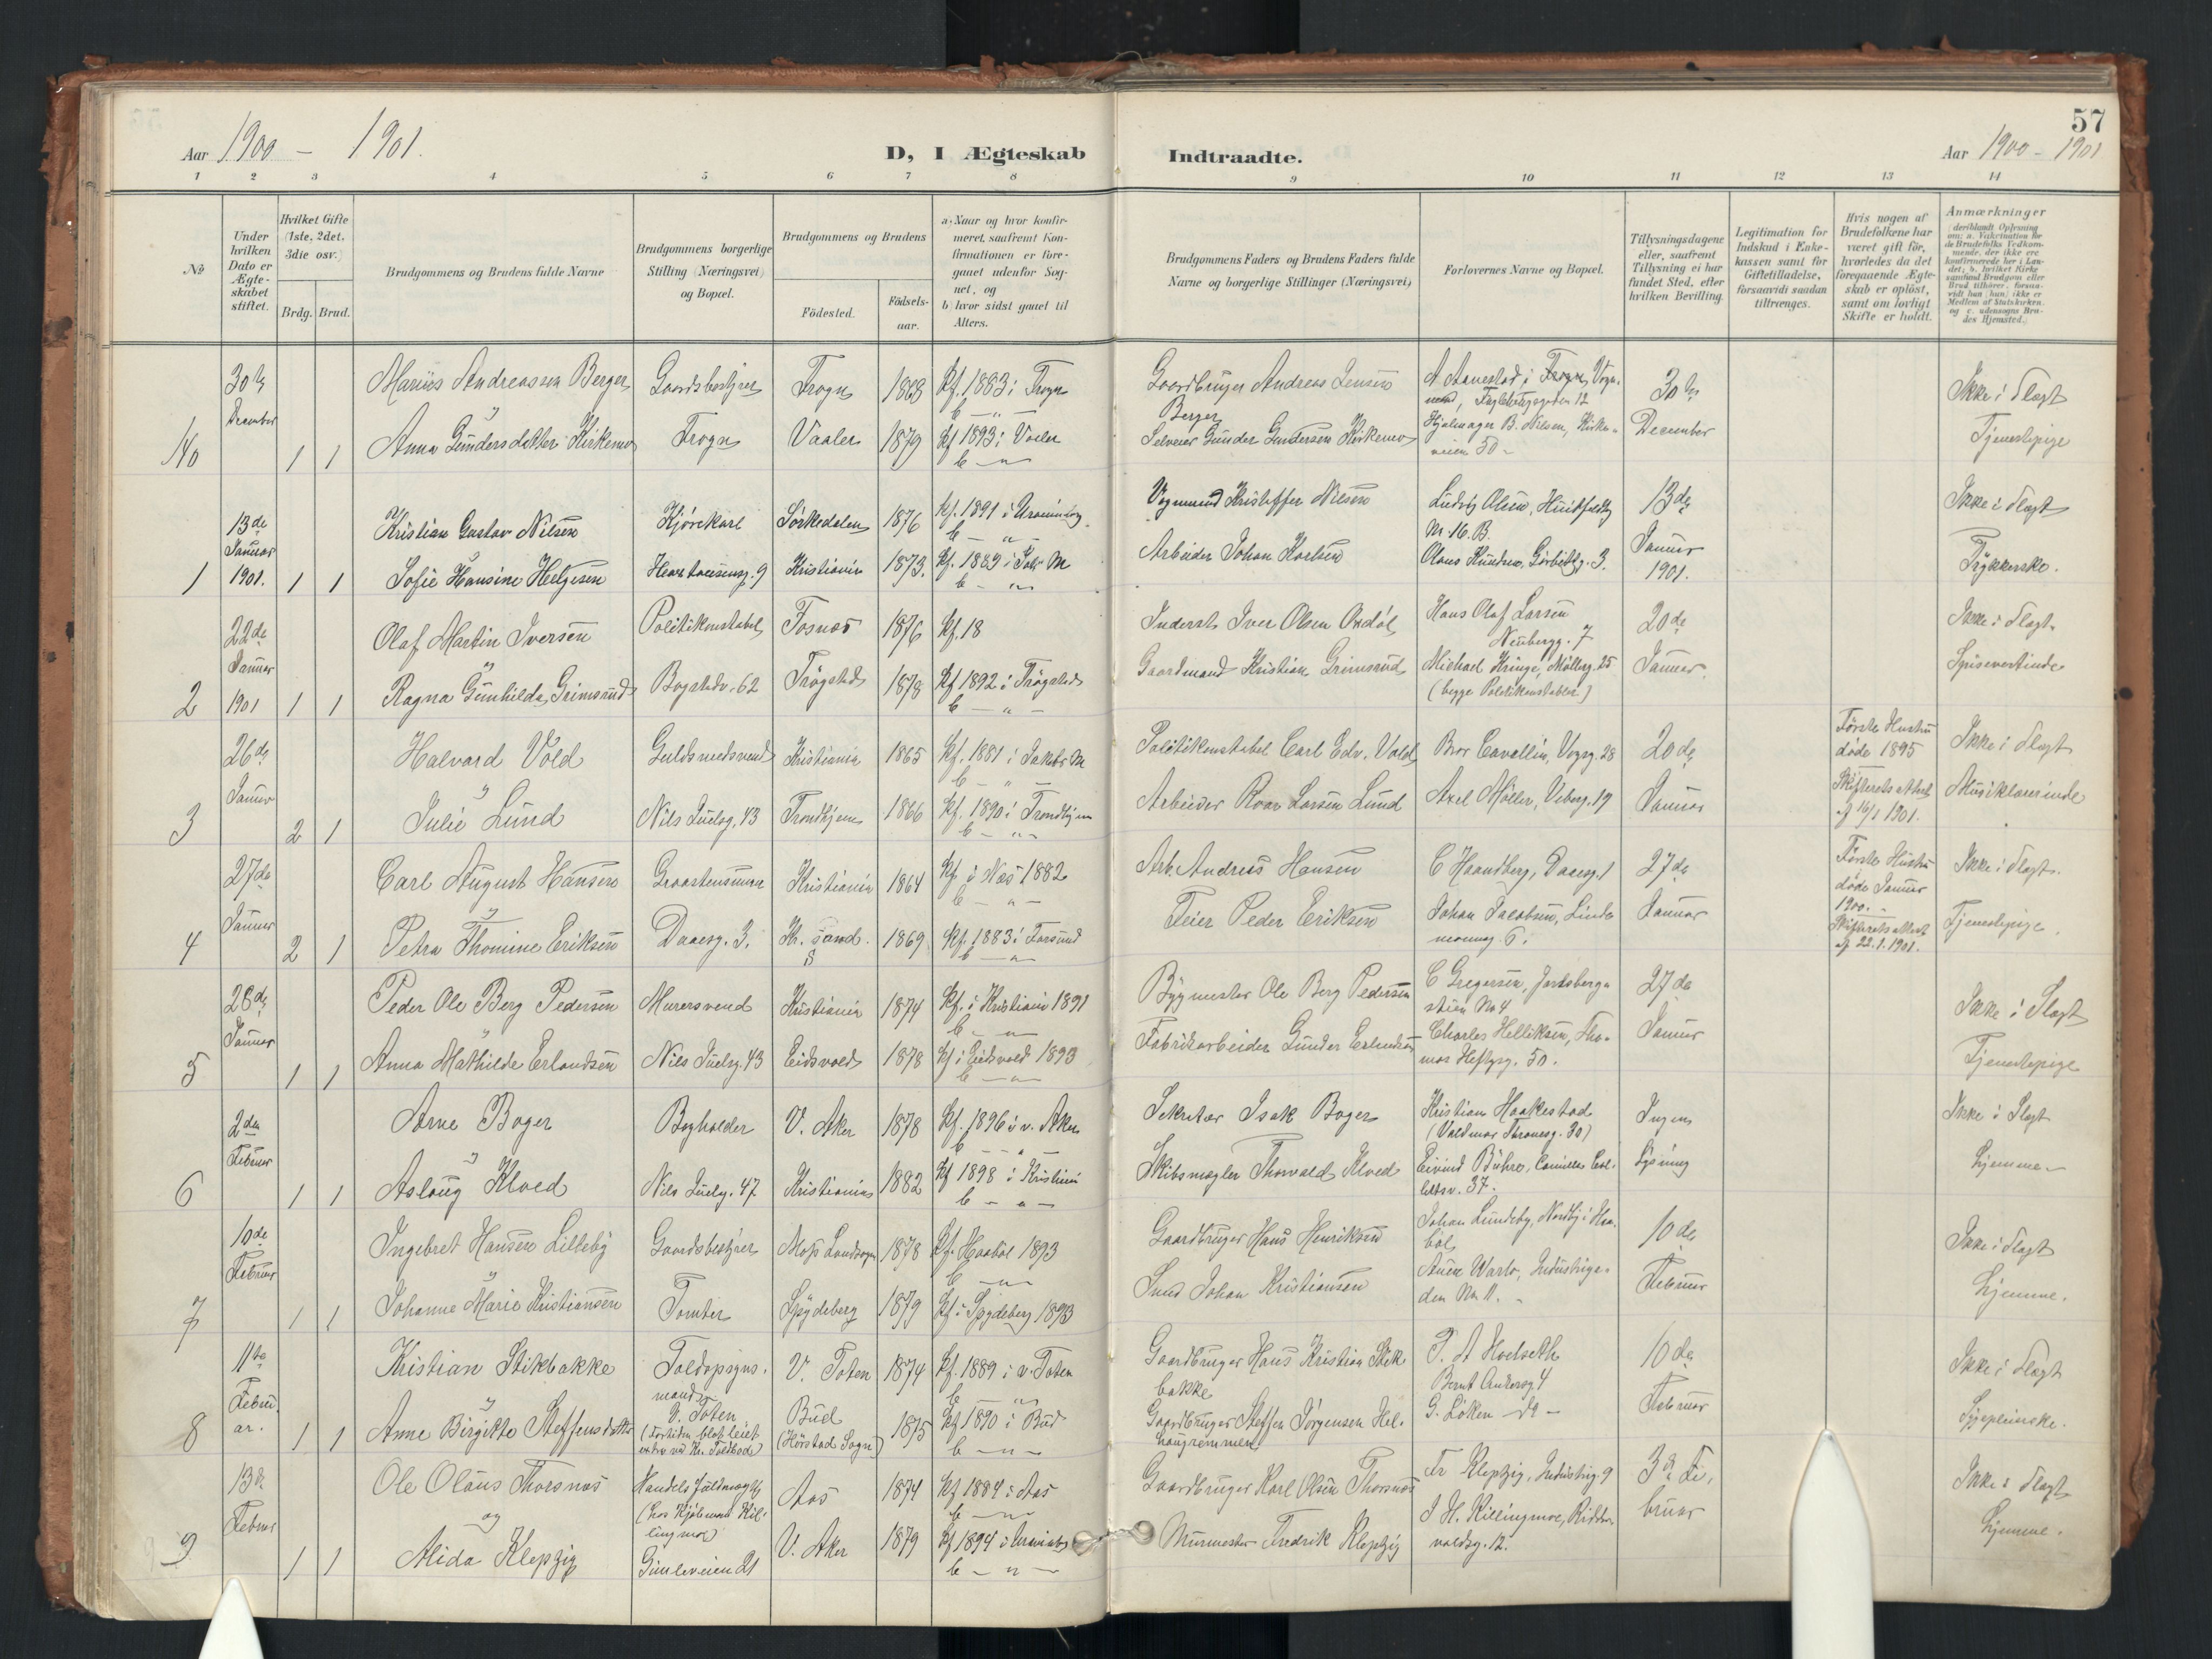 57
Aar 1900 - 1901.
D, I Ægteskab Indtraadte.
Aar 1900 - 1901
1 2 3 4 5 6 7 8 9 10 11 12 13 14
№
Under hvilken Dato er Ægte-skabet stiftet.
Hvilket Gifte (1ste, 2det, 3die osv.)
Brdg. Brud.
Brudgommens og Brudens fulde Navne
Brudgommens borgerlige Stilling (Næringsvei) og Bopæl.
Brudgommens og Brudens
Födested.
Födsels-aar.
a. Naar og hvor konfir-meret, saafremt Kon-firmationen er fore-gaaet udenfor Sog-net, og
b hvor sidst gaaet til Alters.
Brudgommens Faders og Brudens Faders fulde Navne og borgerlige Stillinger (Næringsvei)
Forlovernes Navne og Bopæl.
Tillysningsdagene eller, saafremt Tillysning ei har fundet Sted, efter hvilken Bevilling.
Legitimation for Indskud i Enke-kassen samt for Giftetilladelse, forsaavidt saadan tiltrænges.
Hvis nogen af Brudefolkene har været gift för, hvorledes da det foregaaende Ægte-skab er oplöst, samt om lovligt Skifte er holdt.
Anmærkninger
30te December
1 1
Marius Andreassen Berger
og
Anna Gundersdatter Kirkemo
Gaardsbestyrer
Frogn
Frogn 1868 Kf. 1883 i Frogn
Vaaler 1879 Kf 1893 i Vaaler
Gaardbruger Andreas Jensen Berger
Selveier Gunder Gundersen Kirkemo
Hjulmager B. Nilsen, Kirkeveien 50
30te December
Ikke i Slægt
Tjenestepige
1
13de Januar 1901.
1 1
Kristian Gustav Nilsen
og
Sofie Hansine Helgesen
Kjørekarl
Sørkedalen 1876 Kf. 1891 i Uranienborg
Kristiania 1873.
Vognmand Kristoffer Nilsen
Arbeider Johan Karlsen
Ludvig Olsen, Huitfeldtsg Nr. 16. B.
Olaus Knudsen, Gørbitzg. 3.
13de Januar 1901.
Ikke i Slægt
Trykkerske.
2
22de Januar 1901
1 1
Olaf Martin Iversen
og
Ragna Gunhilda Grimsrud
Politikonstabel
Bogstadv. 62
Fosnæs 1876 Kf. 18
Trøgstad 1878 Kf 1892 i Trøgstad
Inderst Iver Olsen
Gaardmand Kristian Grimsrud
Hans Olaf Larsen Neubergg. 7
Michael Kringe, Møllerg. 25
(begge Politikonstabler)
20de Januar.
Ikke i Slægt.
Spisevertinde
3
26de Januar
2 1
Halvard Vold
og
Julie Lund
Guldsmedsvend
Nils Juelsg. 43
Kristiania 1865 Kf. 1881 i Jakobs M
Trondhjem 1866 Kf. 1890 i Trondhjem
Politikonstabel Carl Edv. Vold
Arbeider Roar Larsen Lund
Bror Cavallin, Vogtsg. 28
Axel Møller, Viberg. 19
20de Januar
Første Hustru døde 1895
Skifterets Attest af 16/1 1901.
Ikke i Slægt
Musiklærerinde
4
27de Januar
2 1
Carl August Hansen
og
Petra Thomine Eriksen
Graastensmurer
Daaesg. 3.
Kristiania 1864 Kf. i Næs 1882
Kr. sand. S 1869 Kf. 1883 i Farsund
Arb. Andreas Hansen
Feier Peder Eriksen
C Haandberg, Daaesg. 1
Johan Jacobsen, 
27de Januar
Første Hustru døde Januar 1900. -
Skifterets Attest af 22.1.1901.
Ikke i Slægt.
Tjenestepige.
5
26de Januar
1 1
Peder Ole Berg Pedersen
og
Anna Mathilde Erlandsen
Murersvend
Nils Juelsg. 43
Kristiania 1874 Kf. i Kristiania 1891
Eidsvold 1878 Kf i Eidsvold 1893
Bygmester Ole Berg Pedersen
Fabrikarbeider Gunder Erlandsen
C Gregersen, No 4
Charles Helliksen, Thomas Heftyesg. 50.
27de Januar
Ikke i Slægt
Tjenestepige
6
2den Februar
1 1
Arne Boger
og
Aslaug Kloed
Bogholder
Nils Juelsg. 47
V. Aker 1878 Kf. 1896 i v. Aker
Kristiania 1882 Kf 1898 i Kristiania
Sekretær Isak Boger
Skibsmægler Thorvald Kloed
Kristian Haakestad
(Valdemar Thranesg. 30)
Eivind Buhre, Camilla Collettsv. 37.
Ingen Lysning
Ikke i Slægt
Hjemme
7
10de Februar
1 1
Ingebret Hansen Lilleby
og
Johanne Marie Kristiansen
Gaardsbestyrer
Tomter
Moss Landsogn 1878 Kf. Haabøl 1893
Spydeberg 1879 Kf. i Spydeberg 1893
Gaardbruger Hans Henriksen
Smed Johan Kristiansen
Johan Lundeby, Nordby i Haabøl
Warlo, Industrigaden No 11.
10de Februar
Ikke i Slægt
Hjemme.
8
11te Februar.
1 1
Kristian Stikbakke
og
Anne Birgitte Steffensdatter
Toldopsynsmand
V. Toten
V. Toten 1874 Kf. 1889 i v. Toten
Bud 1875 Kf 1890 i Bud
Gaardbruger Hans Kristian Stikbakke
Gaardbruger Steffen Jørgensen
P. A Hoelseth
Bernt Ankersg 4
G. Løken - do -
10de Februar
Ikke i Slægt
Sygepleierske.
9
13de Februar
1 1
Ole Olaus Thorsnæs
og
Alida Klepzig
Handelsfuldmægtig
(hos Kjøbmand Killingmo)
Gimleveien 21
Aas 1874 Kf 1889 i Aas
V. Aker 1879 Kf 1894 i Uranienb
Gaardbruger Karl Olsen Thorsnæs
Murmester Fredrik Klepzig
Fr Klepzig, Industrig. 9
I H. Killingmoe, Riddervoldsg. 12.
13de Februar
Ikke i Slægt
Hjemme.